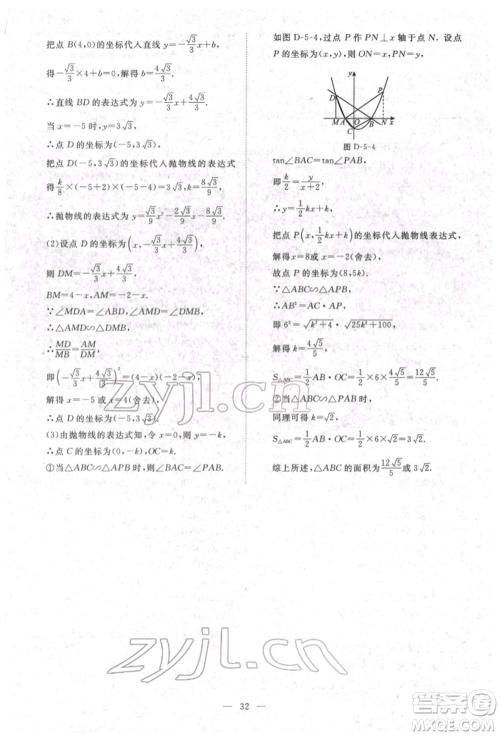 把点 B(4,0)的坐标代入直线 y=-\frac{\sqrt{3}}{3}x+b,
得-\frac{\sqrt{3}}{3}×4+b=0,解得 b=\frac{4\sqrt{3}}{3}.
∴直线 BD 的表达式为 y=-\frac{\sqrt{3}}{3}x+\frac{4\sqrt{3}}{3}.
当 x=-5 时,y=3\sqrt{3}.
∴点 D 的坐标为(-5,3\sqrt{3}).
把点 D(-5,3\sqrt{3})的坐标代入抛物线的表达式
得\frac{k}{8}×(-5+2)×(-5-4)=3\sqrt{3},解得 k=\frac{8\sqrt{3}}{9}.
∴抛物线的表达式为 y=\frac{\sqrt{3}}{9}x²-\frac{2\sqrt{3}}{9}x-\frac{8\sqrt{3}}{9}.
(2)设点 D 的坐标为(x,-\frac{\sqrt{3}}{3}x+\frac{4\sqrt{3}}{3}),
则 DM=-\frac{\sqrt{3}}{3}x+\frac{4\sqrt{3}}{3},AM=-2-x,
BM=4-x.
∵∠MDA=∠DBA,∠AMD=∠DMB,
∴△AMD∽△DMB.
∴\frac{MD}{MB}=\frac{AM}{DM}.
即(-\frac{\sqrt{3}}{3}x+\frac{4\sqrt{3}}{3})²=(4-x)(-2-x),
解得 x=-5,x=4(舍去),
∴点 D 的坐标为(-5,3\sqrt{3}).
(3)由抛物线的表达式知,令 x=0,则 y=-k.
∴点 C 的坐标为(0,-k),OC=k.
①当△ABC∽△APB 时,则∠BAC=∠PAB.
如图 D-5-4,过点 P 作 PN⊥x 轴于点 N. 设点
P 的坐标为(x,y),则 ON=x,PN=y.
y
D
P
M A O B N x
C
图 D-5-4
tan∠BAC=tan∠PAB,
即\frac{k}{2}=\frac{y}{x+2}.
∴y=\frac{1}{2}kx+k.
把点 P(x,\frac{1}{2}kx+k)的坐标代入抛物线表达式,
解得 x=8或 x=-2(舍去),
故点 P 的坐标为(8,5k).
∵△ABC∽△APB,
∴AB²=AC·AP.
即 6²=\sqrt{k²+4}·\sqrt{25k²+100},
解得 k=\frac{4\sqrt{5}}{5}.
S_{△ABC}=\frac{1}{2}AB·OC=\frac{1}{2}×6×\frac{4\sqrt{5}}{5}=\frac{12\sqrt{5}}{5}.
②当△ABC∽△PAB 时,
同理可得 k=\sqrt{2}.
S_{△ABC}=\frac{1}{2}AB·OC=\frac{1}{2}×6×\sqrt{2}=3\sqrt{2}.
综上所述,△ABC 的面积为\frac{12\sqrt{5}}{5}或 3\sqrt{2}.
zyjl.cn
zyjl.cn
— 32 —
答案圈
MXQE.COM